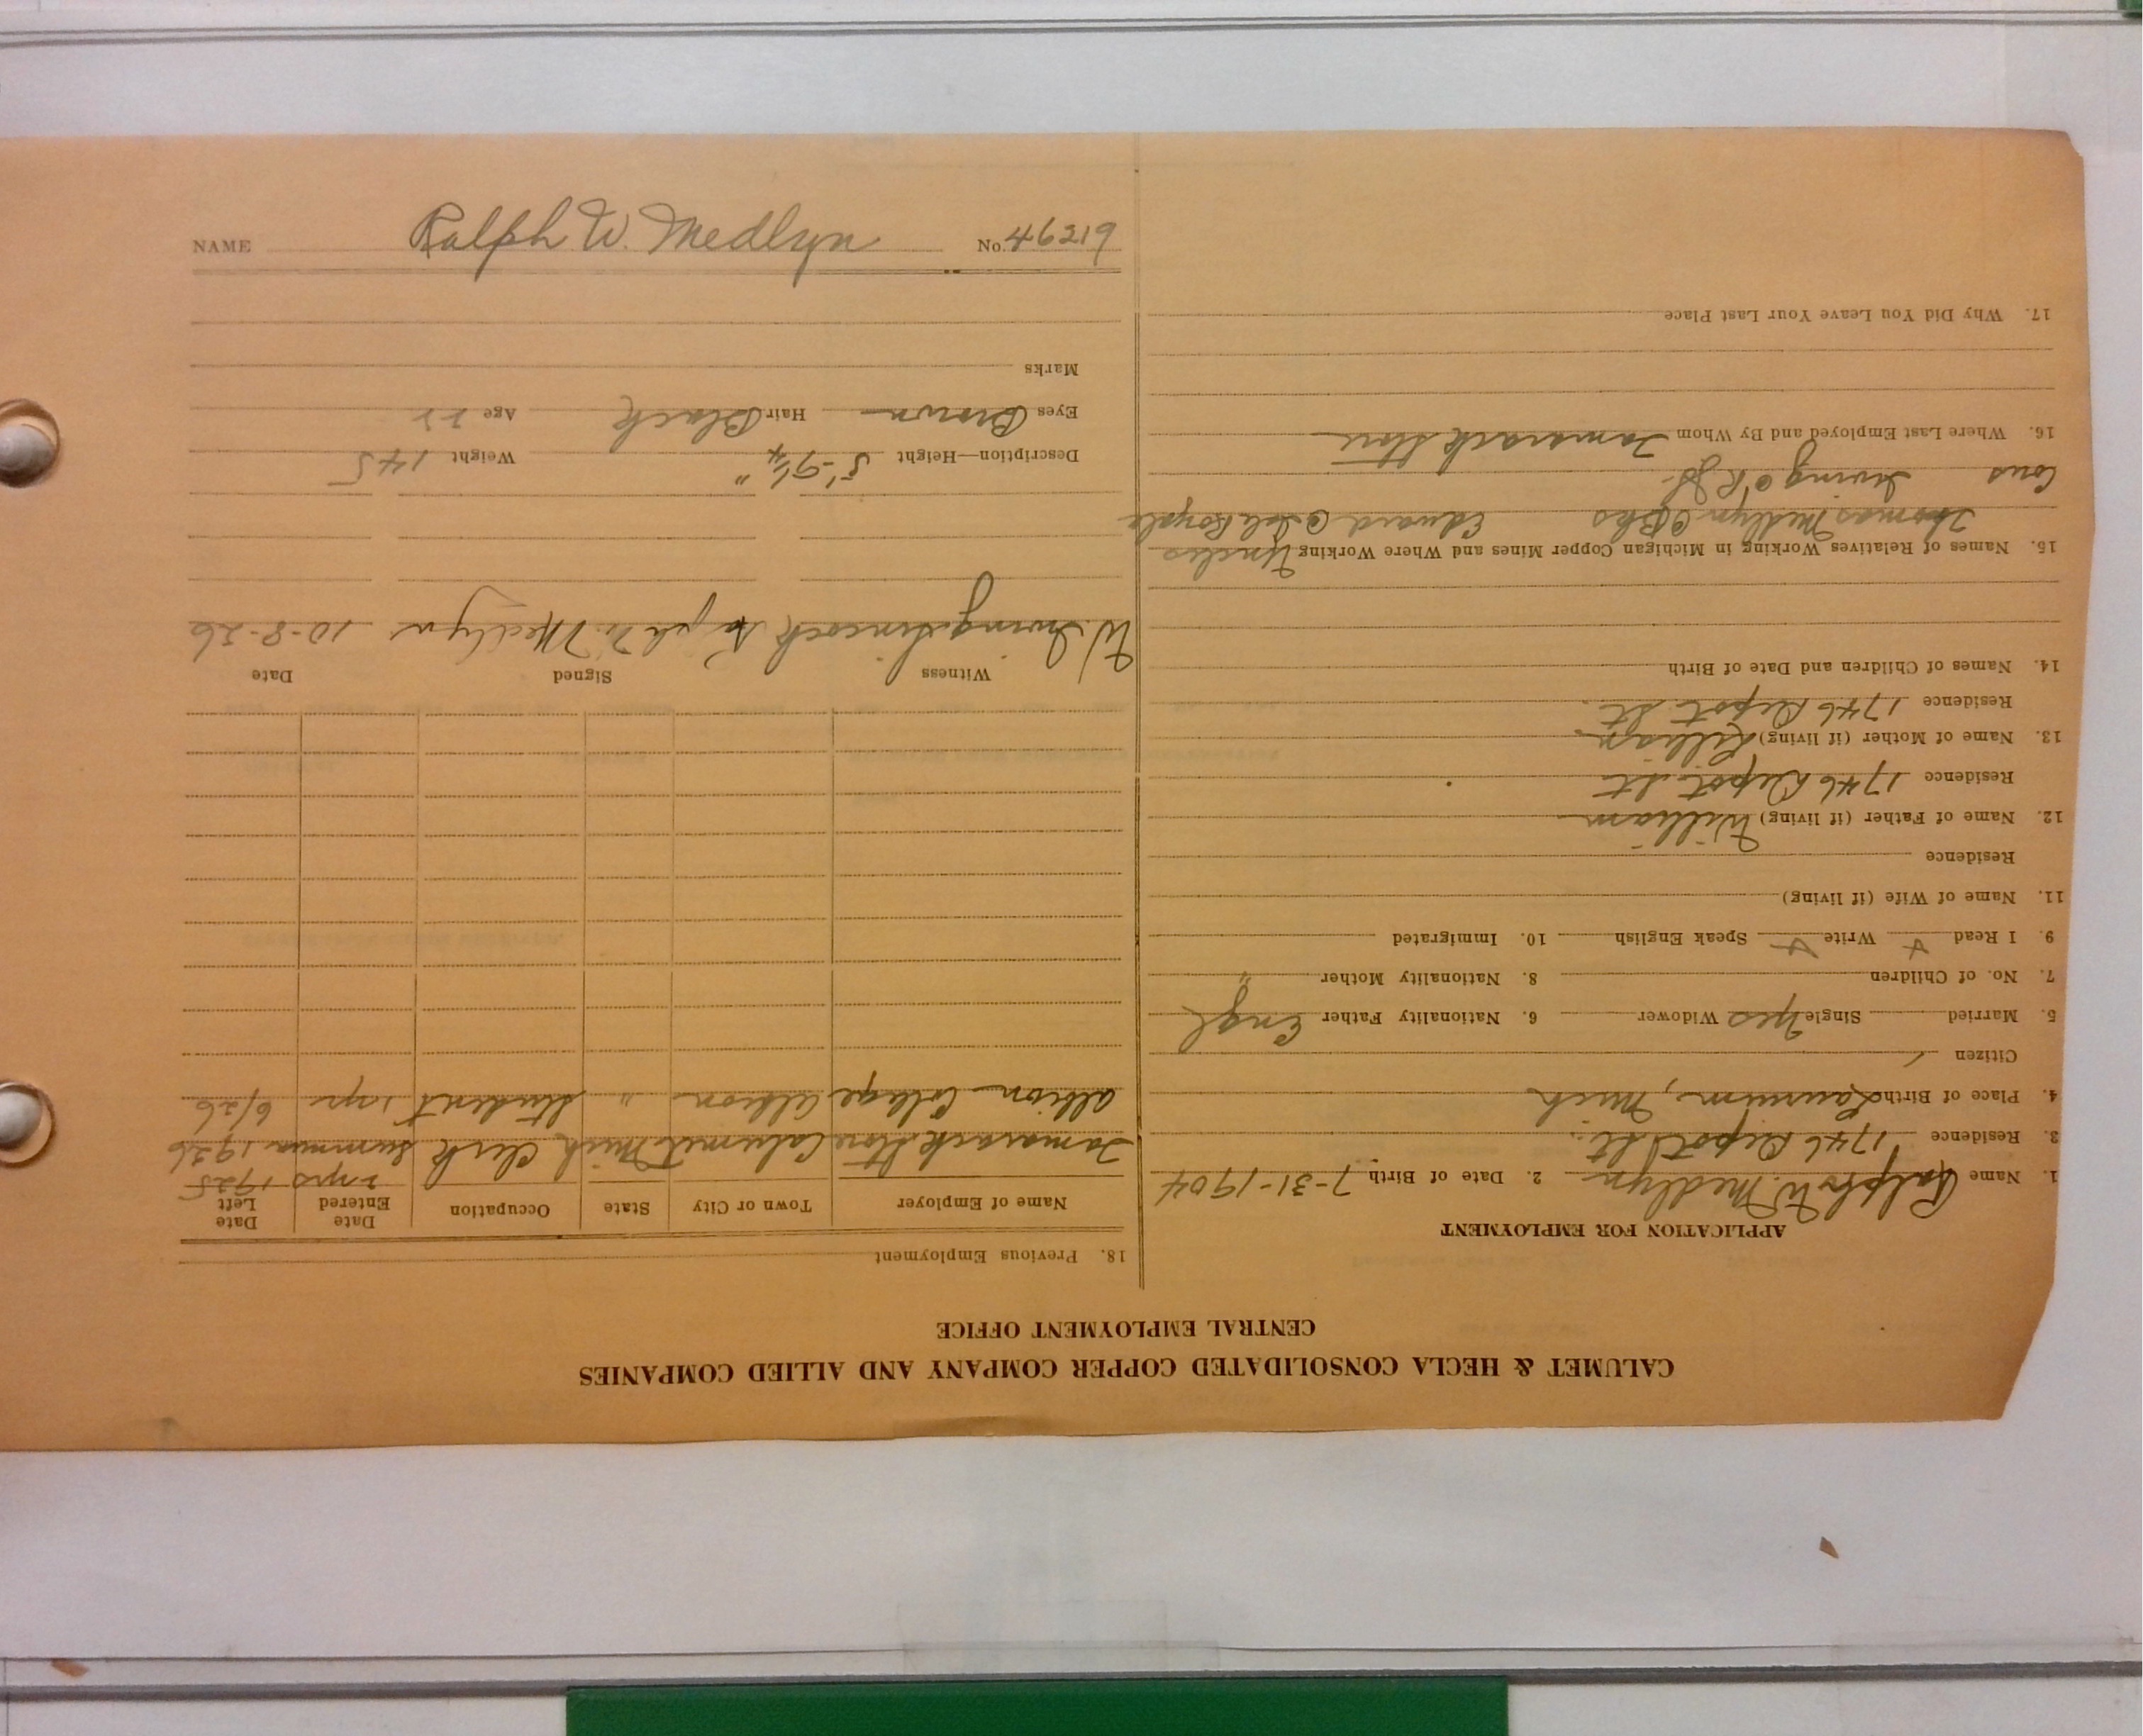 CALUMET & HECLA CONSOLIDATED COPPER COMPANY AND ALLIED COMPANIES
CENTRAL EMPLOYMENT OFFICE
APPLICATION FOR EMPLOYMENT
1. Name Ralph W. Medlyn 2. Date of Birth 7-31-1904
3. Residence 1746 Depot St.
4. Place of Birth Laurium, Mich
Citizen
5. Married Single Yes Widower 6. Nationality Father Engl
7. No. of Children 8. Nationality Mother "
9. I Read Write Speak English 10. Immigrated
11. Name of Wife (if living)
Residence
12. Name of Father (if living) William
Residence 1746 Depot St
13. Name of Mother (if living) Lillian
Residence 1746 Depot St.
14. Names of Children and Date of Birth
15. Names of Relatives Working in Michigan Copper Mines and Where Working Uncles
Thomas Medlyn @ Bks Edward @ Isle Royale
Cous Irving @
16. Where Last Employed and By Whom Tamarack Store
17. Why Did You Leave Your Last Place
18. Previous Employment
Name of Employer Town or City State Occupation Date Entered Date Left
2 yrs 1925
Tamarack Store Calumet Mich Clerk Summer 1926
Albion College Albion " Student 1 yr 6/26
Witness Signed Date
W. Irving Sincock Ralph W. Medlyn 10-8-26
Description—Height 5'-9 1/4" Weight 145
Eyes Brown Hair Black Age 22
Marks
NAME Ralph W. Medlyn No. 46219